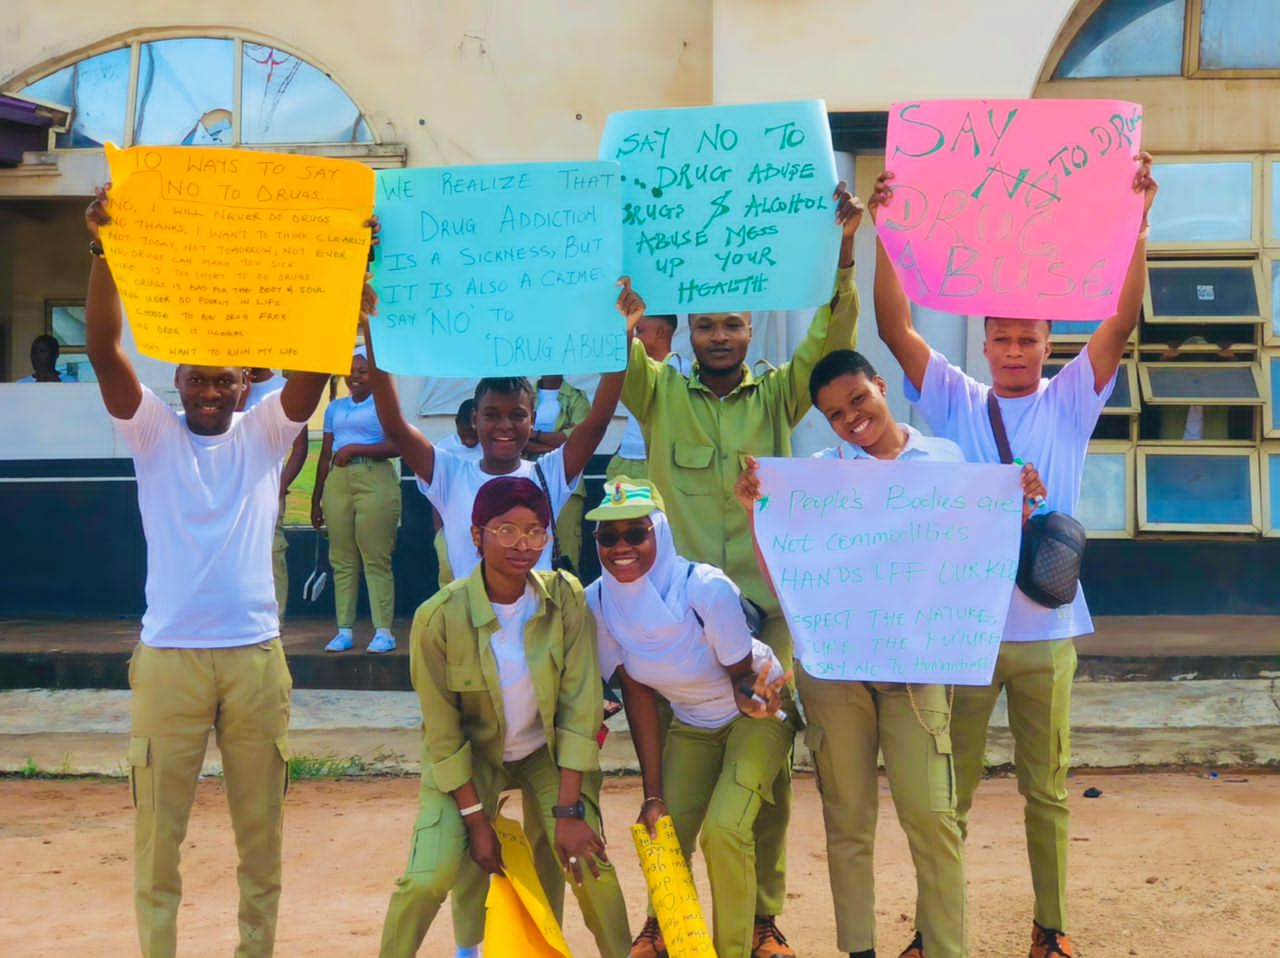 10 WAYS TO SAY
NO TO DRUGS.
NO, I WILL NEVER DO DRUGS
NO THANKS, I WANT TO THINK CLEARLY
NOT TODAY, NOT TOMORROW, NOT EVER
DRUGS CAN MAKE YOU SICK
LIFE IS TOO SHORT TO DO DRUGS
DRUGS IS BAD FOR THE BODY & SOUL
DO POORLY IN LIFE
CHOOSE TO DRUG FREE
DRUG IS ILLEGAL
WANT TO RUIN MY LIFE
WE REALIZE THAT
DRUG ADDICTION
IS A SICKNESS, BUT
IT IS ALSO A CRIME.
SAY 'NO' TO
'DRUG ABUSE
SAY NO TO
...DRUG ABUSE
DRUGS & ALCOHOL
ABUSE MESS
UP YOUR
HEALTH
SAY
NO TO DRUG
DRUG
ABUSE
People's Bodies are
Not commodities
HANDS OFF OUR
RESPECT THE NATURE,
THE FUTURE
SAY NO TO